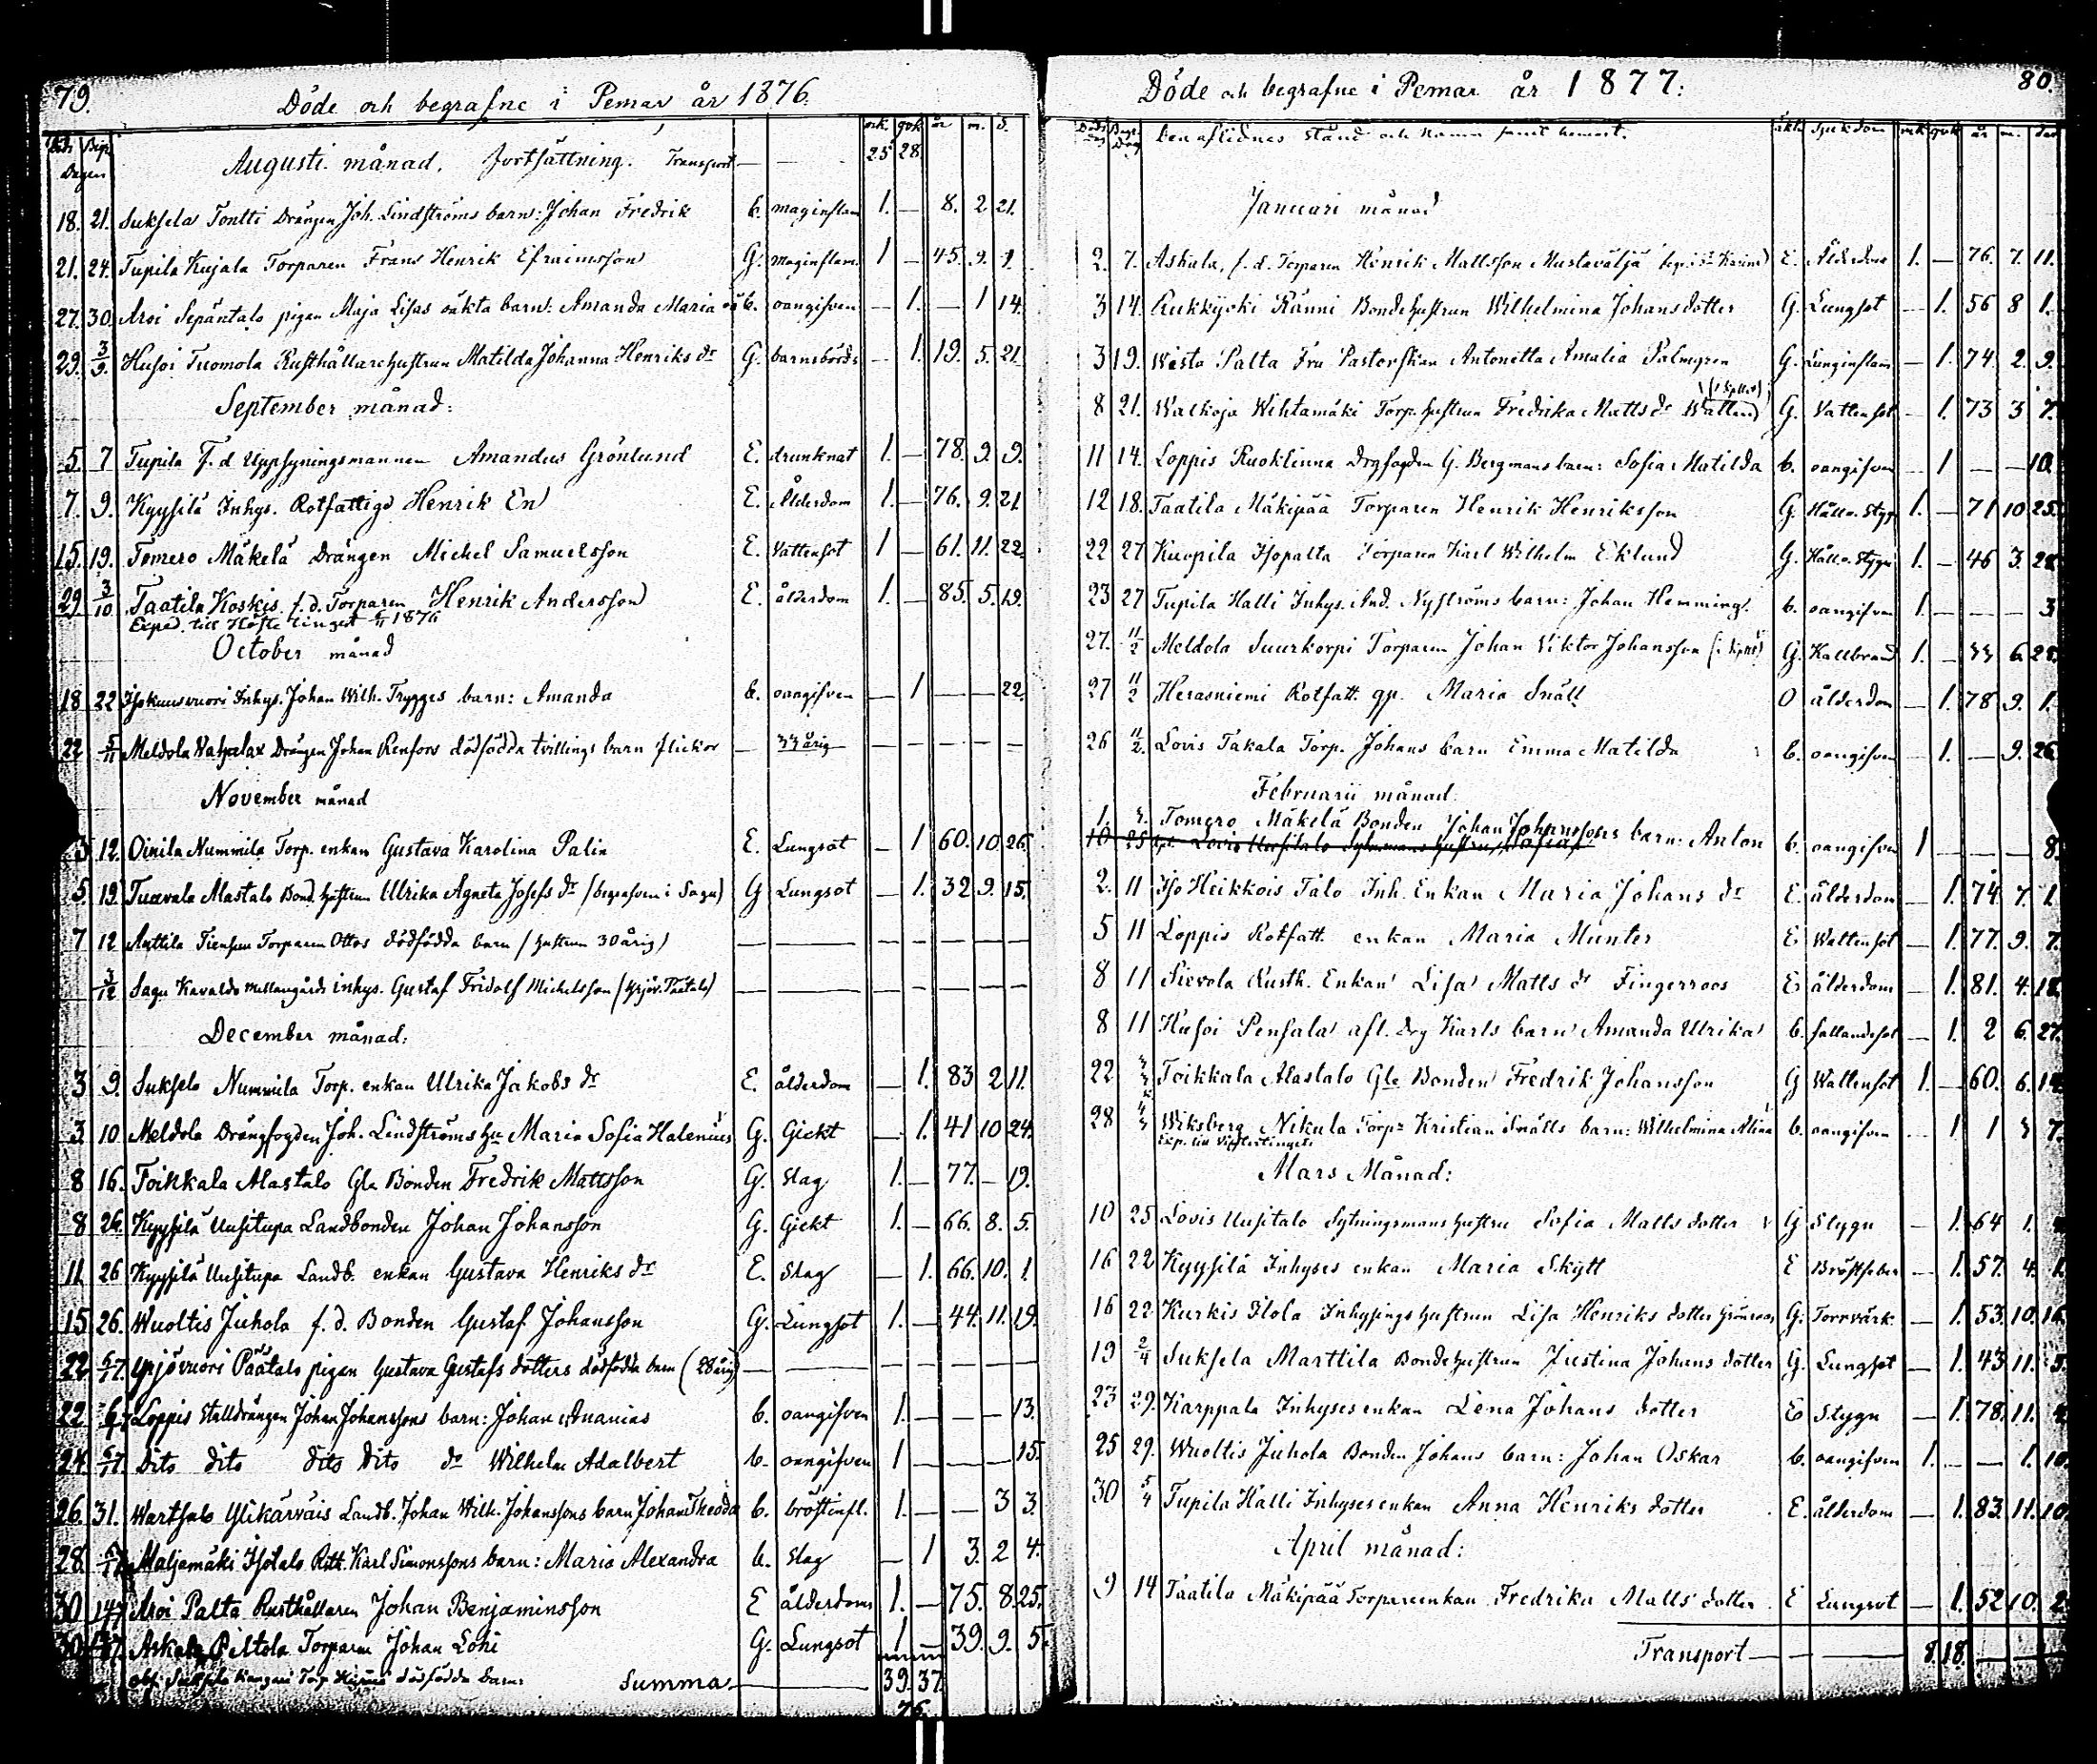 79.
Döde och begrafne i Pemar år 1876.
Döds Begr. Dagen mk. qvk. år m. d.
Augusti månad. fortsättning. Transport — — 25 28
18. 21. Suksela Tontti Drängen Joh. Lindströms barn: Johan Fredrik b. maginflam 1. — 8. 2 21.
21. 24. Tupila Kujala Torparen Frans Henrik Efraimsson G. maginflam. 1 — 45. 9. 1.
27. 30. Aroi Sepäntalo pigan Maja Lisas oäkta barn: Amanda Maria b. oangifven — 1. — 1 14.
29. 3/9. Husoi Tuomola Rusthållarehustrun Matilda Johanna Henriks dr G. barnsbörds — 1. 19. 5. 21.
September månad:
5. 7 Tupila f. d Uppsyningsmannen Amandus Grönlund E. drunknat 1. — 78. 9. 9.
7. 9. Kyysilä Inhys. Rotfattige Henrik En E. Ålderdom 1. — 76. 9. 21
15. 19. Tomero Mäkelä Drängen Michel Samuelsson E. Vattensot 1 — 61. 11. 22.
29 3/10 Taatila Koskis f. d. Torparen Henrik Andersson E. ålderdom 1. — 85. 5. 19.
Exped. till Häfte tinget 1876
October månad
18 22 Isokuusvuori Inhys. Johan Wilh. Trygges barn: Amanda b. oangifven — 1 — — 22.
22 5/11 Meldola Drängen Johan Renfors dödfödda tvillings barn flickor — 33 årig — — — — —
November månad
3 12. Oinila Nummila Torp. enkan Gustava Karolina Palin E. Lungsot — 1 60. 10. 26.
5. 19. Tuovala Alastalo Bond. hustrun Ulrika Agneta Josefs dr (begrafven i Sagu) G Lungsot — 1. 32 9. 15.
7 12 Anttila Torparen Ottos dödfödda barn (hustrun 30 årig) — — — — — — —
3/12 Sagu Kavaldo mellangårds inhys. Gustaf Fridolf Michelsson (Yrjöv. Päätalo) — — — — — — —
December månad:
3 9. Suksela Nummila Torp. enkan Ulrika Jakobs dr E. ålderdom — 1. 83 2 11.
3. 10 Meldola Drängfogden Joh. Lindströms hu Maria Sofia Halenius G. Gickt — 1. 41 10 24.
8 16. Toikkala Alastalo Gla Bonden Fredrik Mattsson G. Slag 1. — 77. — 19.
8 26. Kyysilä Uusitupa Landbonden Johan Johansson G. Gickt 1. — 66. 8. 5.
11 26 Kyysilä Uusitupa Landb. enkan Gustava Henriks dr E. Slag — 1. 66. 10. 1.
15 26. Wuoltis Juhola f. d. Bonden Gustaf Johansson G. Lungsot 1. — 44. 11. 19.
22 6/17. Yrjövuori Päätalo pigan Gustava Gustafs dotters dödfödda barn (28 årig) — — — — — — —
22 6/17 Loppis Stalldrängen Johan Johanssons barn: Johan Ananias b. oangifven 1. — — — 13.
24. 6/17. dito dito dito dito dr Wilhelm Adalbert b. oangifven 1 — — — 15.
26. 31. Wartsalo Ylikärväis Landb. Johan Wilh. Johanssons barn Johan Theodor b. bröstinfl. 1. — — 3 3.
28. Maljamäki Isotalo Rstt. Karl Simonssons barn: Maria Alexandra b. Slag — 1 3. 2 4.
30 Aroi Palta Rusthållaren Johan Benjaminsson E ålderdom 1. — 75. 8. 25.
30 Askala Piltola Torparen Johan Lohi G. Lungsot 1 — 39. 9. 5.
dödfödda barn Summa — — 39. 37.
76.
80.
Döde och begrafne i Pemar år 1877:
Döds dag Begr. Dag Den aflidnes stånd och namn samt hemort. äkt. Sjukdom mk qvk år m. dar
Januari månad
2. 7. Askala, f. d. Torparen Henrik Mattsson Mustaväljä (begr. i St Karins) E. Ålderdom 1. — 76. 7. 11.
3 14. Rukkijoki Ränni Bondehustrun Wilhelmina Johansdotter G. Lungsot — 1. 56 8 1.
3 19. Wista Palta Fru Pastorskan Antonetta Amalia Palmgren G. Lunginflam — 1. 74. 2. 9.
8 21. Walkoja Wihtamäki Torp. hustrun Fredrika Matts dr G. Vattensot — 1. 73 3 7.
11 14. Loppis Ruoklinna Drgfogden G. Bergmans barn: Sofia Matilda b. oangifven — 1 — — 10.
12 18. Taatila Mäkipää Torparen Henrik Henriksson G. Håll o. Styg 1. — 71 10 25.
22 27 Kuopila Isopalta Torparen Karl Wilhelm Eklund G. Håll o. Stygn 1. — 46 3. 28.
23 27 Tupila Halli Inhys. And. Nyströms barn: Johan Hemming b. oangifven 1. — — — 3
27. 11/2 Meldola Suurkorpi Torparen Johan Viktor Johansson G. Kallbrand 1. — 33 6. 28.
27 11/2 Herasniemi Rotfatt. gp. Maria Snäll O ålderdom — 1. 78 9. 1.
26 11/2. Lovis Takala Torp. Johans barn Emma Matilda b. oangifven — 1. — 9. 26.
Februarii månad.
1. 3. Tomero Mäkelä Bonden Johan Johanssons barn: Anton b. oangifven 1 — — — 8.
10 25 Lovis Uusitalo Sytningsmans hustru Sofia
2. 11 Iso Heikkois Talo Inh. Enkan Maria Johans dr E. ålderdom — 1. 74 7. 1.
5 11 Loppis Rotfatt. enkan Maria Munter E Wattensot — 1. 77. 9. 7.
8 11 Sievola Rusth. Enkan Lisa Matts dr Fingerroos E ålderdom — 1. 81. 4. 18.
8 11 Husoi Pensala afl. Drg Karls barn Amanda Ulrika b. fallandesot — 1. 2 6. 27.
22 3/3 Toikkala Alastalo Gla Bonden Fredrik Johansson G Wattensot 1. — 60. 6. 14.
28 4/3 Wiksberg Nikula Torpr Kristian Snälls barn: Wilhelmina Alina b. oangifven — 1 1 3 7.
Mars Månad:
10 25 Lovis Uusitalo Sytningsmans hustru Sofia Matts dotter G Stygn — 1. 64 1. 4.
16 22 Kyysilä Inhyses enkan Maria Skytt E Bröstfeber — 1. 57. 4. 1.
16 22 Kurkis Ilola Inhysings hustrun Lisa Henriks dotter Grönroos G. Torrvärk — 1. 53. 10. 16.
19 2/4 Suksela Marttila Bondehustrun Justina Johans dotter G. Lungsot — 1. 43. 11. 5.
23 29. Karppala Inhyses enkan Lena Johans dotter E Stygn — 1. 78. 11. 4.
25 29. Wuoltis Juhola Bonden Johans barn: Johan Oskar b. oangifven 1. — — 1. 10.
30 5/4 Tupila Halli Inhyses enkan Anna Henriks dotter E. ålderdom — 1. 83. 11. 10.
April månad:
9 14 Taatila Mäkipää Torpareenkan Fredrika Matts dotter E Lungsot — 1. 52 10. 2.
Transport — — — 8. 18. — — —